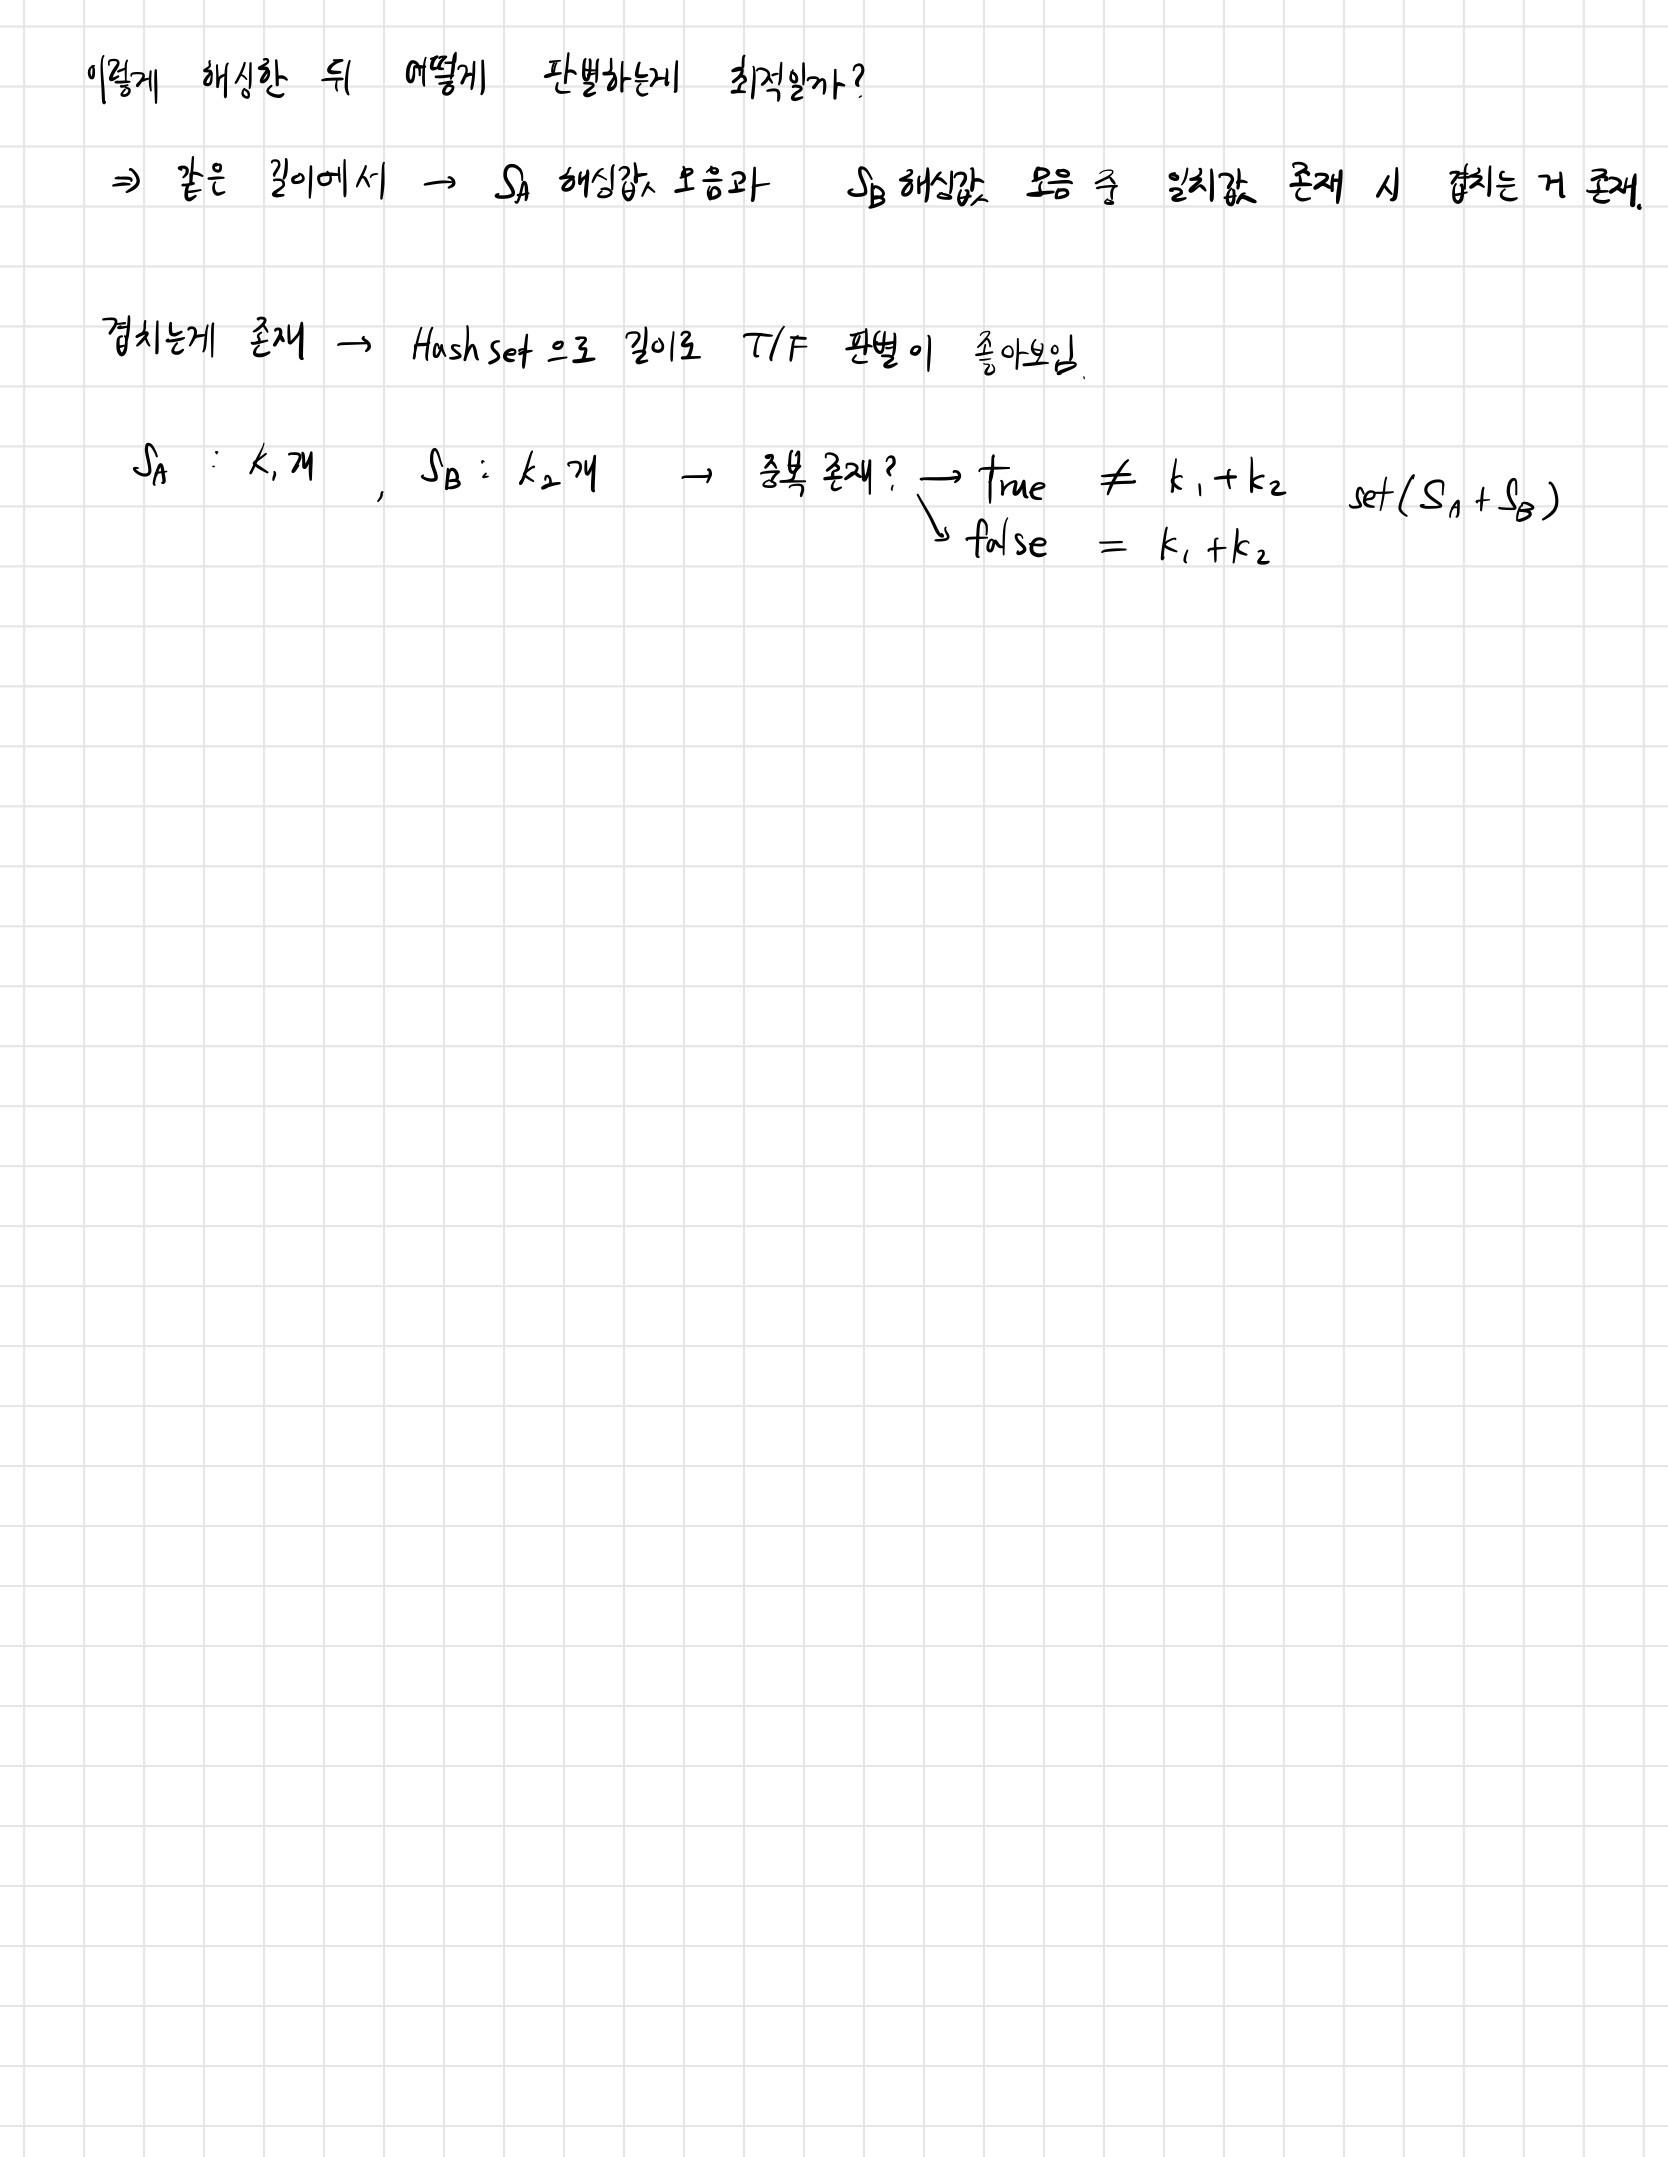 이렇게 해싱한 뒤 어떻게 판별하는게 최적일까?
⇒ 같은 길이에서 → S_A 해싱값 모음과 S_B 해싱값 모음 중 일치값 존재 시 겹치는 거 존재.
겹치는게 존재 → Hash set 으로 길이로 T/F 판별이 좋아보임.
S_A : k₁개 , S_B : k₂개 → 중복 존재? → true ≠ k₁+k₂ set(S_A + S_B)
↘ false = k₁+k₂